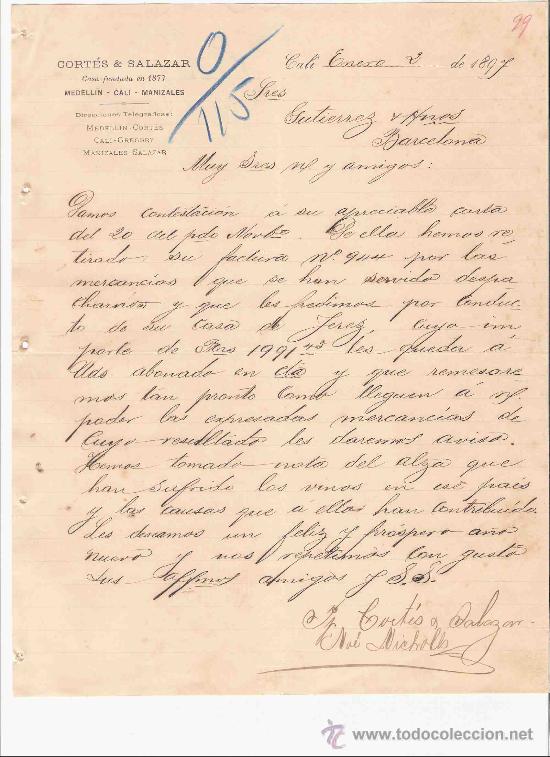 99
CORTÉS & SALAZAR
Casa fundada en 1877
MEDELLIN - CALI - MANIZALES
Direcciones Telegraficas:
MEDELLIN-CORTÉS
CALI-GREGORY
MANIZALES-SALAZAR
0/115
Cali Enero 2 de 1897
Sres
Gutierrez & Hnos
Barcelona
Muy Sres n/ y amigos:
Damos contestación á su apreciable carta
del 20 del pdo Novbre. De ella hemos re-
tirado su factura Nº 944 por las
mercancías que se han servido despa
charnos y que les pedimos por conduc
to de su casa de Jerez, cuyo im
porte de 1991 les queda á
Uds abonado en cta y que remesare
mos tan pronto como lleguen á n/
poder las expresadas mercancías de
cuyo resultado les daremos aviso.
Hemos tomado nota del alza que
han sufrido los vinos en ese país
y las causas que á ellas han contribuido.
Les deseamos un feliz y próspero año
nuevo y nos repetimos con gusto
sus affmos amigos y S.S.
Cortés & Salazar
Noé Nicholls
www.todocoleccion.net